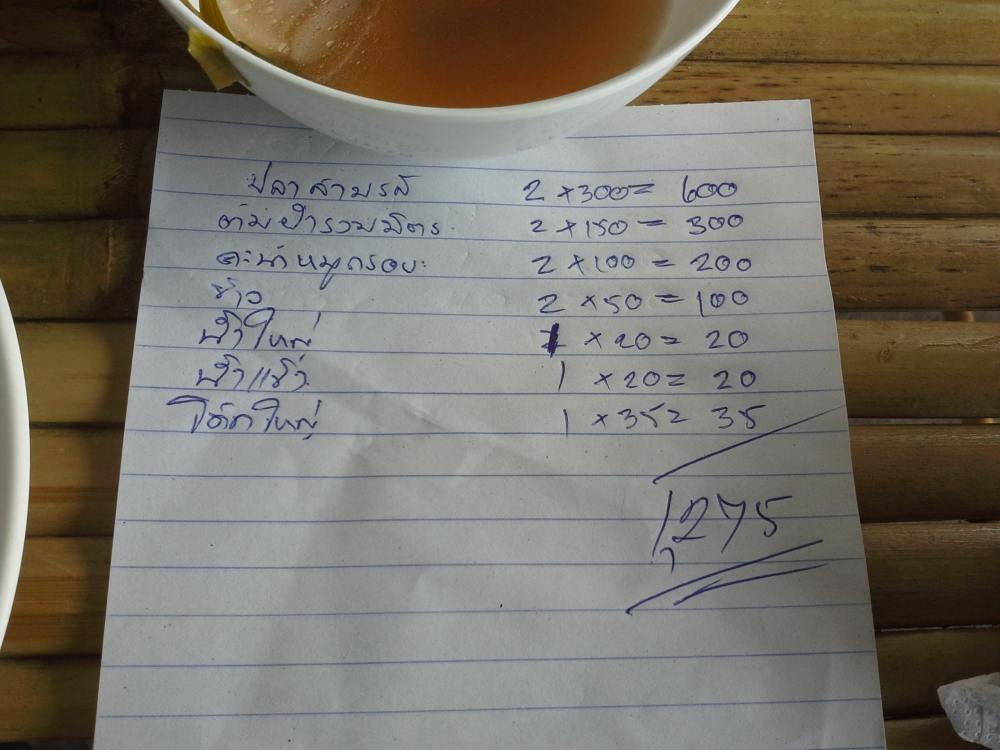 ปลาสามรส 2 ×300= 600
ต้มยำรวมมิตร 2 ×150 = 300
คะน้าหมูกรอบ 2 ×100 = 200
ข้าว 2 ×50 = 100
น้ำใหญ่ 1 × 20= 20
น้ำแข็ง 1 ×20= 20
โค้กใหญ่ 1 ×35= 35
1,275